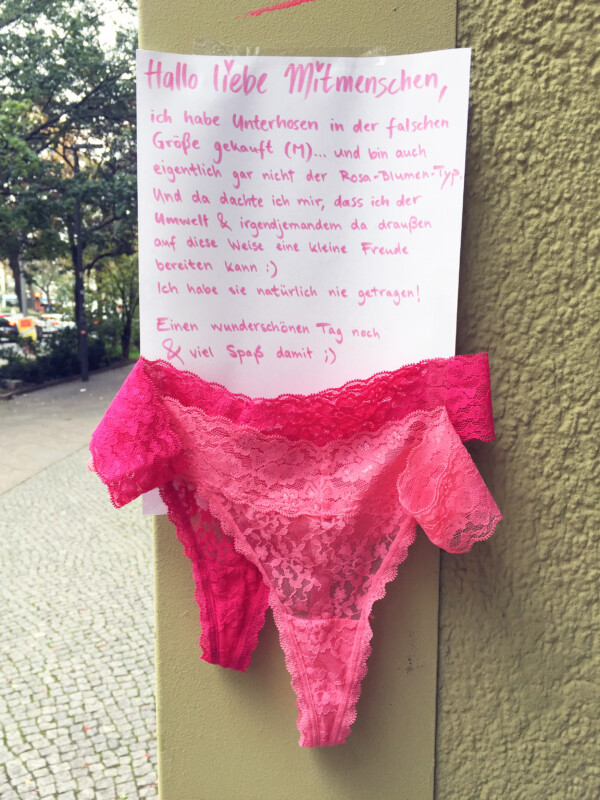 Hallo liebe Mitmenschen,
ich habe Unterhosen in der falschen
Größe gekauft (M)... und bin auch
eigentlich gar nicht der Rosa-Blumen-Typ.
Und da dachte ich mir, dass ich der
Umwelt & irgendjemandem da draußen
auf diese Weise eine kleine Freude
bereiten kann :)
Ich habe sie natürlich nie getragen!
Einen wunderschönen Tag noch
& viel Spaß damit ;)